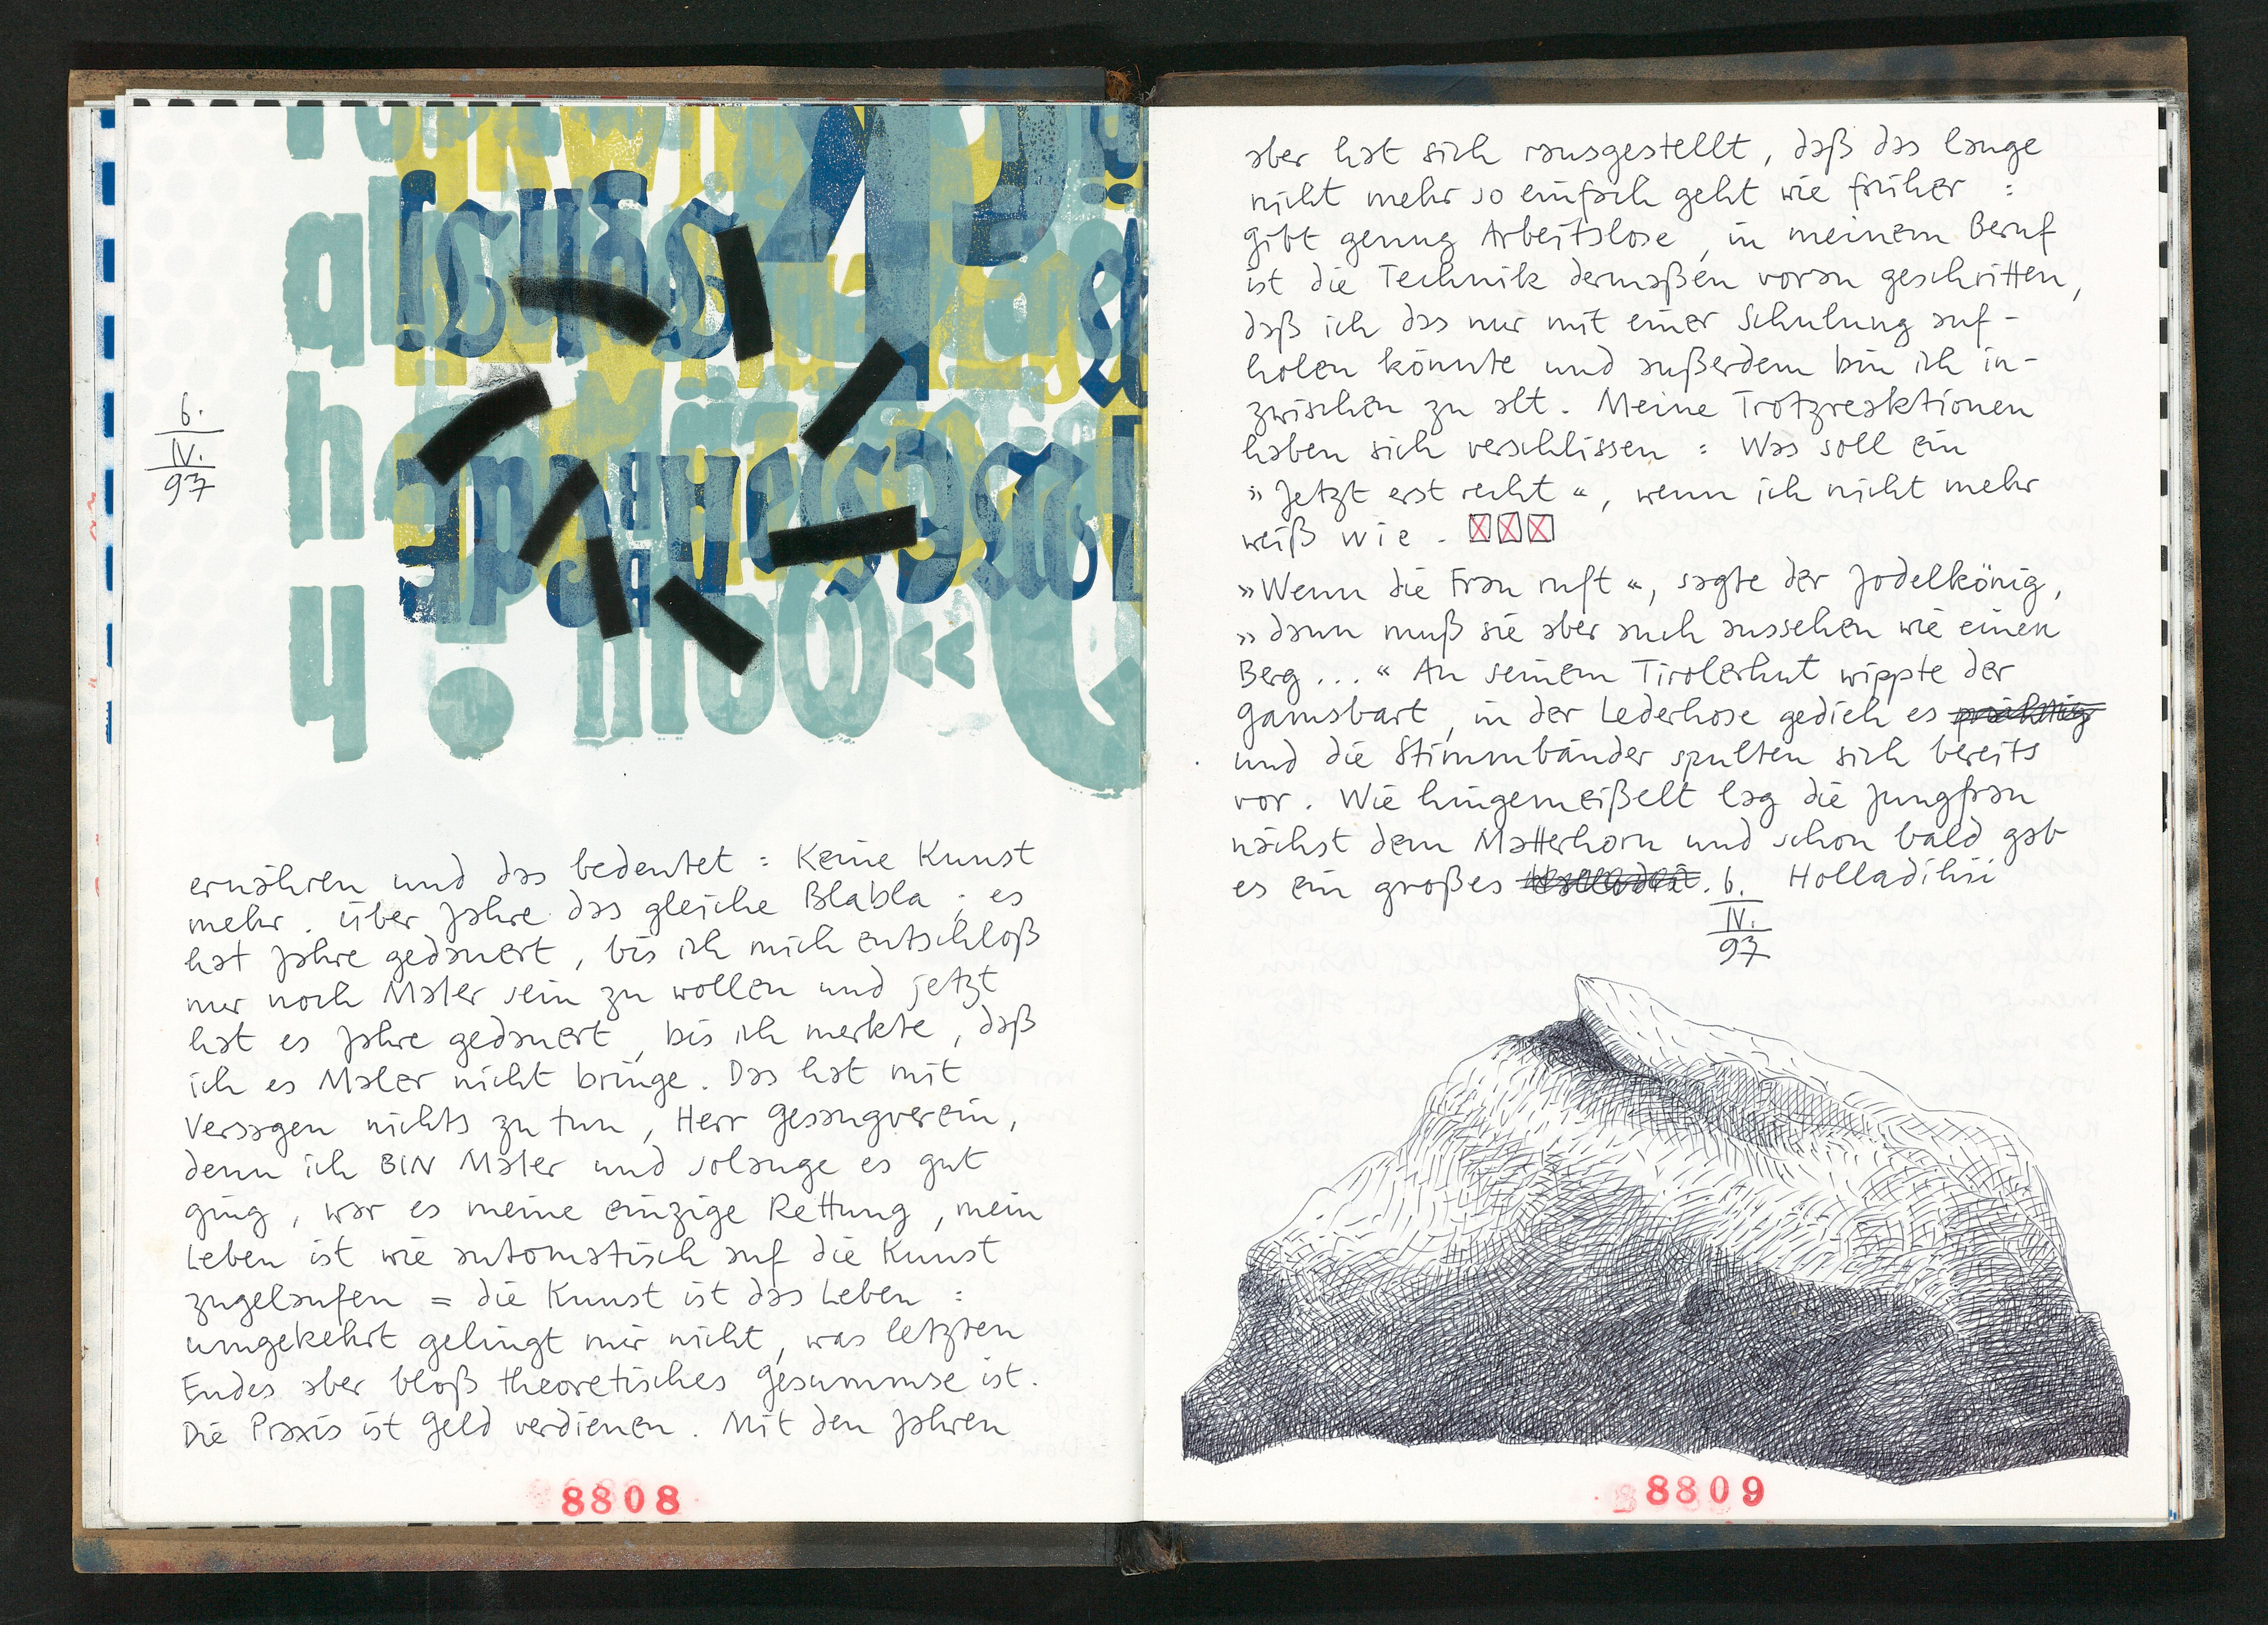 6.
IV.
97
ernähren und das bedeutet : Keine Kunst
mehr. Über Jahre das gleiche Blabla ; es
hat Jahre gedauert, bis ich mich entschloß
nur noch Maler sein zu wollen und jetzt
hat es Jahre gedauert, bis ich merkte, daß
ich es Maler nicht bringe. Das hat mit
Versagen nichts zu tun, Herr Gesangverein,
denn ich BIN Maler und solange es gut
ging, war es meine einzige Rettung, mein
Leben ist wie automatisch auf die Kunst
zugelaufen = die Kunst ist das Leben :
umgekehrt gelingt mir nicht, was letzten
Endes aber bloß theoretisches Gesummse ist.
Die Praxis ist Geld verdienen. Mit den Jahren
8808
aber hat sich rausgestellt, daß das lange
nicht mehr so einfach geht wie früher :
gibt genug Arbeitslose, in meinem Beruf
ist die Technik dermaßen voran geschritten,
daß ich das nur mit einer Schulung auf-
holen könnte und außerdem bin ich in-
zwischen zu alt. Meine Trotzreaktionen
haben sich verschlissen : Was soll ein
»Jetzt erst recht«, wenn ich nicht mehr
weiß wie.
»Wenn die Frau ruft«, sagte der Jodelkönig,
»dann muß sie aber auch aussehen wie einen
Berg ...« An seinem Tirolerhut wippte der
Gamsbart, in der Lederhose gedieh es prächtig
und die Stimmbänder spulten sich bereits
vor. Wie hingemeißelt lag die Jungfrau
nächst dem Matterhorn und schon bald gab
es ein großes . Holladihii
6.
IV.
97
8809